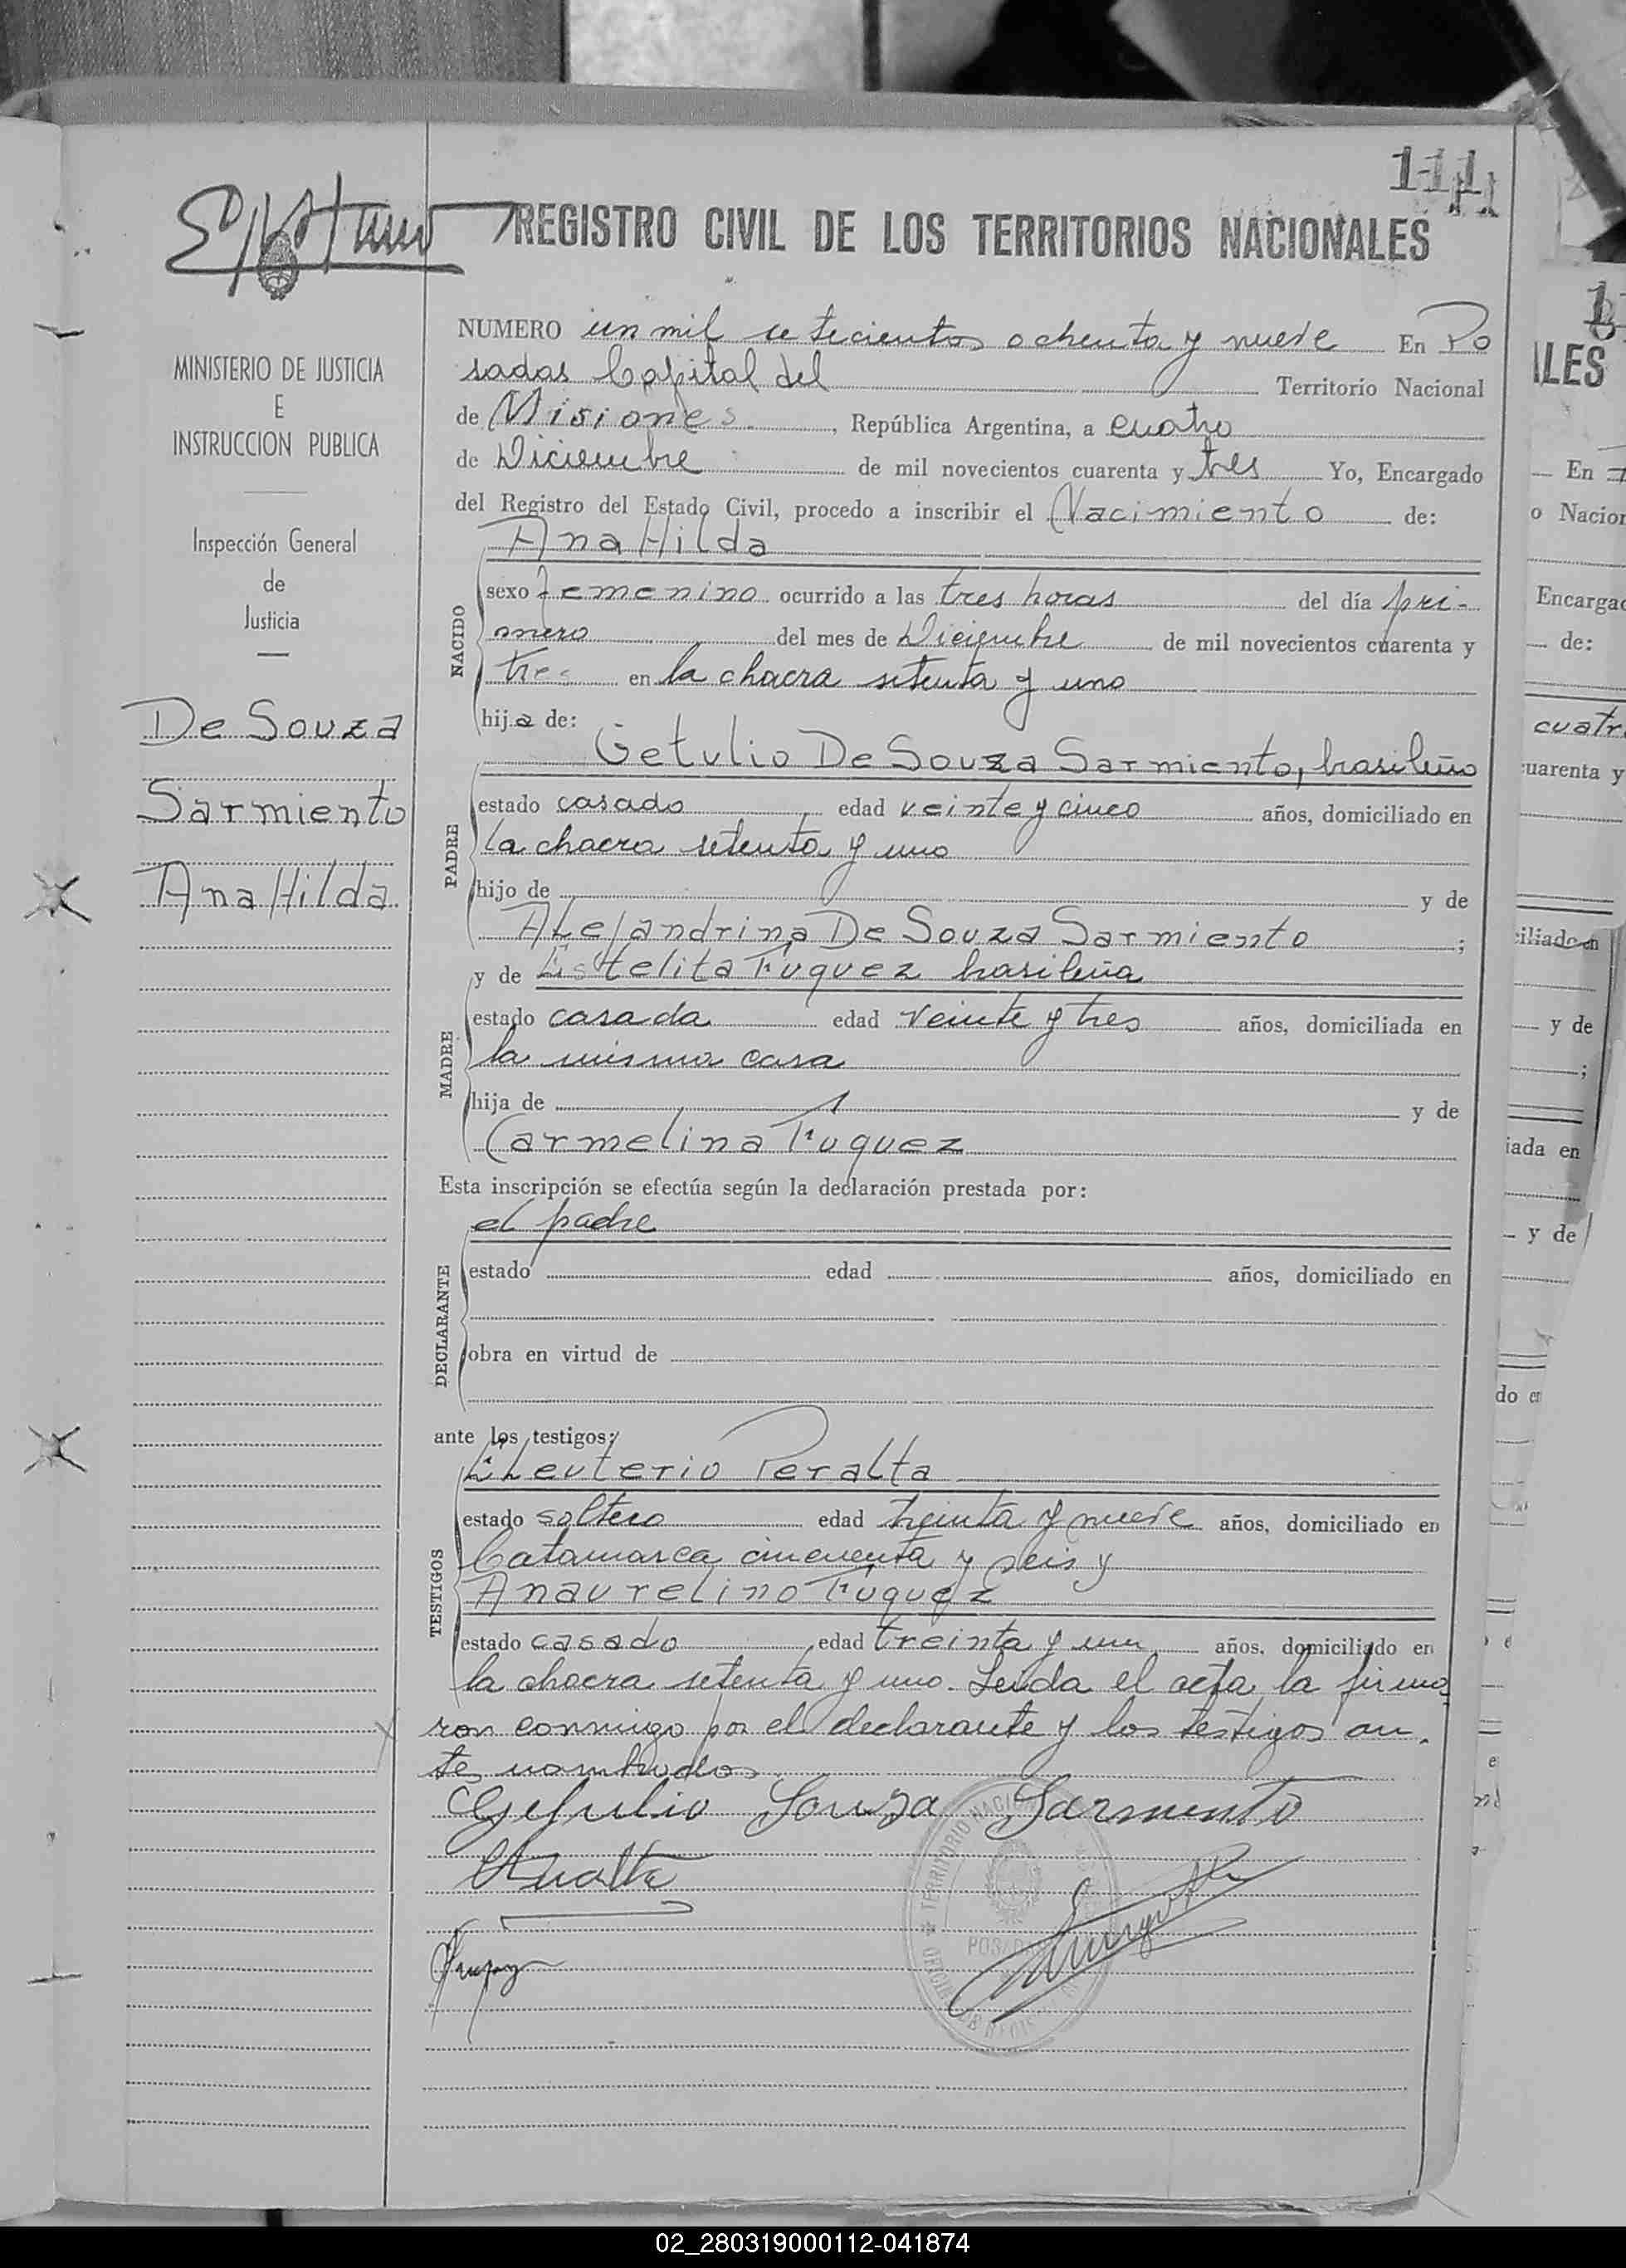 111
REGISTRO CIVIL DE LOS TERRITORIOS NACIONALES
MINISTERIO DE JUSTICIA
E
INSTRUCCION PUBLICA
Inspección General
de
Justicia
De Souza
Sarmiento
Ana Hilda
NUMERO un mil setecientos ochenta y nueve En Po
sadas Capital del Territorio Nacional
de Misiones, República Argentina, a cuatro
de Diciembre de mil novecientos cuarenta y tres Yo, Encargado
del Registro del Estado Civil, procedo a inscribir el Nacimiento de:
Ana Hilda
NACIDO
sexo femenino ocurrido a las tres horas del día pri-
mero del mes de Diciembre de mil novecientos cuarenta y
tres en la chacra setenta y uno
hija de:
Getulio De Souza Sarmiento, brasileño
PADRE
estado casado edad veinte y cinco años, domiciliado en
la chacra setenta y uno
hijo de y de
Alejandrina De Souza Sarmiento ;
y de Estelita Fuquez brasileña
MADRE
estado casada edad veinte y tres años, domiciliada en
la misma casa
hija de y de
Carmelina Fuquez
Esta inscripción se efectúa según la declaración prestada por:
el padre
DECLARANTE
estado edad años, domiciliado en
obra en virtud de
ante los testigos:
Eleuterio Peralta
TESTIGOS
estado soltero edad treinta y nueve años, domiciliado en
Catamarca cincuenta y seis y
Anaurelino Fuquez
estado casado edad treinta y un años, domiciliado en
la chacra setenta y uno. Leida el acta, la firma
ron conmigo por el declarante y los testigos an-
tes nombrados.
Getulio Souza Sarmento
TERRITORIO NACIONAL
POSADAS
ALES
En
o Nacion
Encargad
de:
cuatr
cuarenta y
ciliado en
y de
;
iada en
y de
do en
02_280319000112-041874